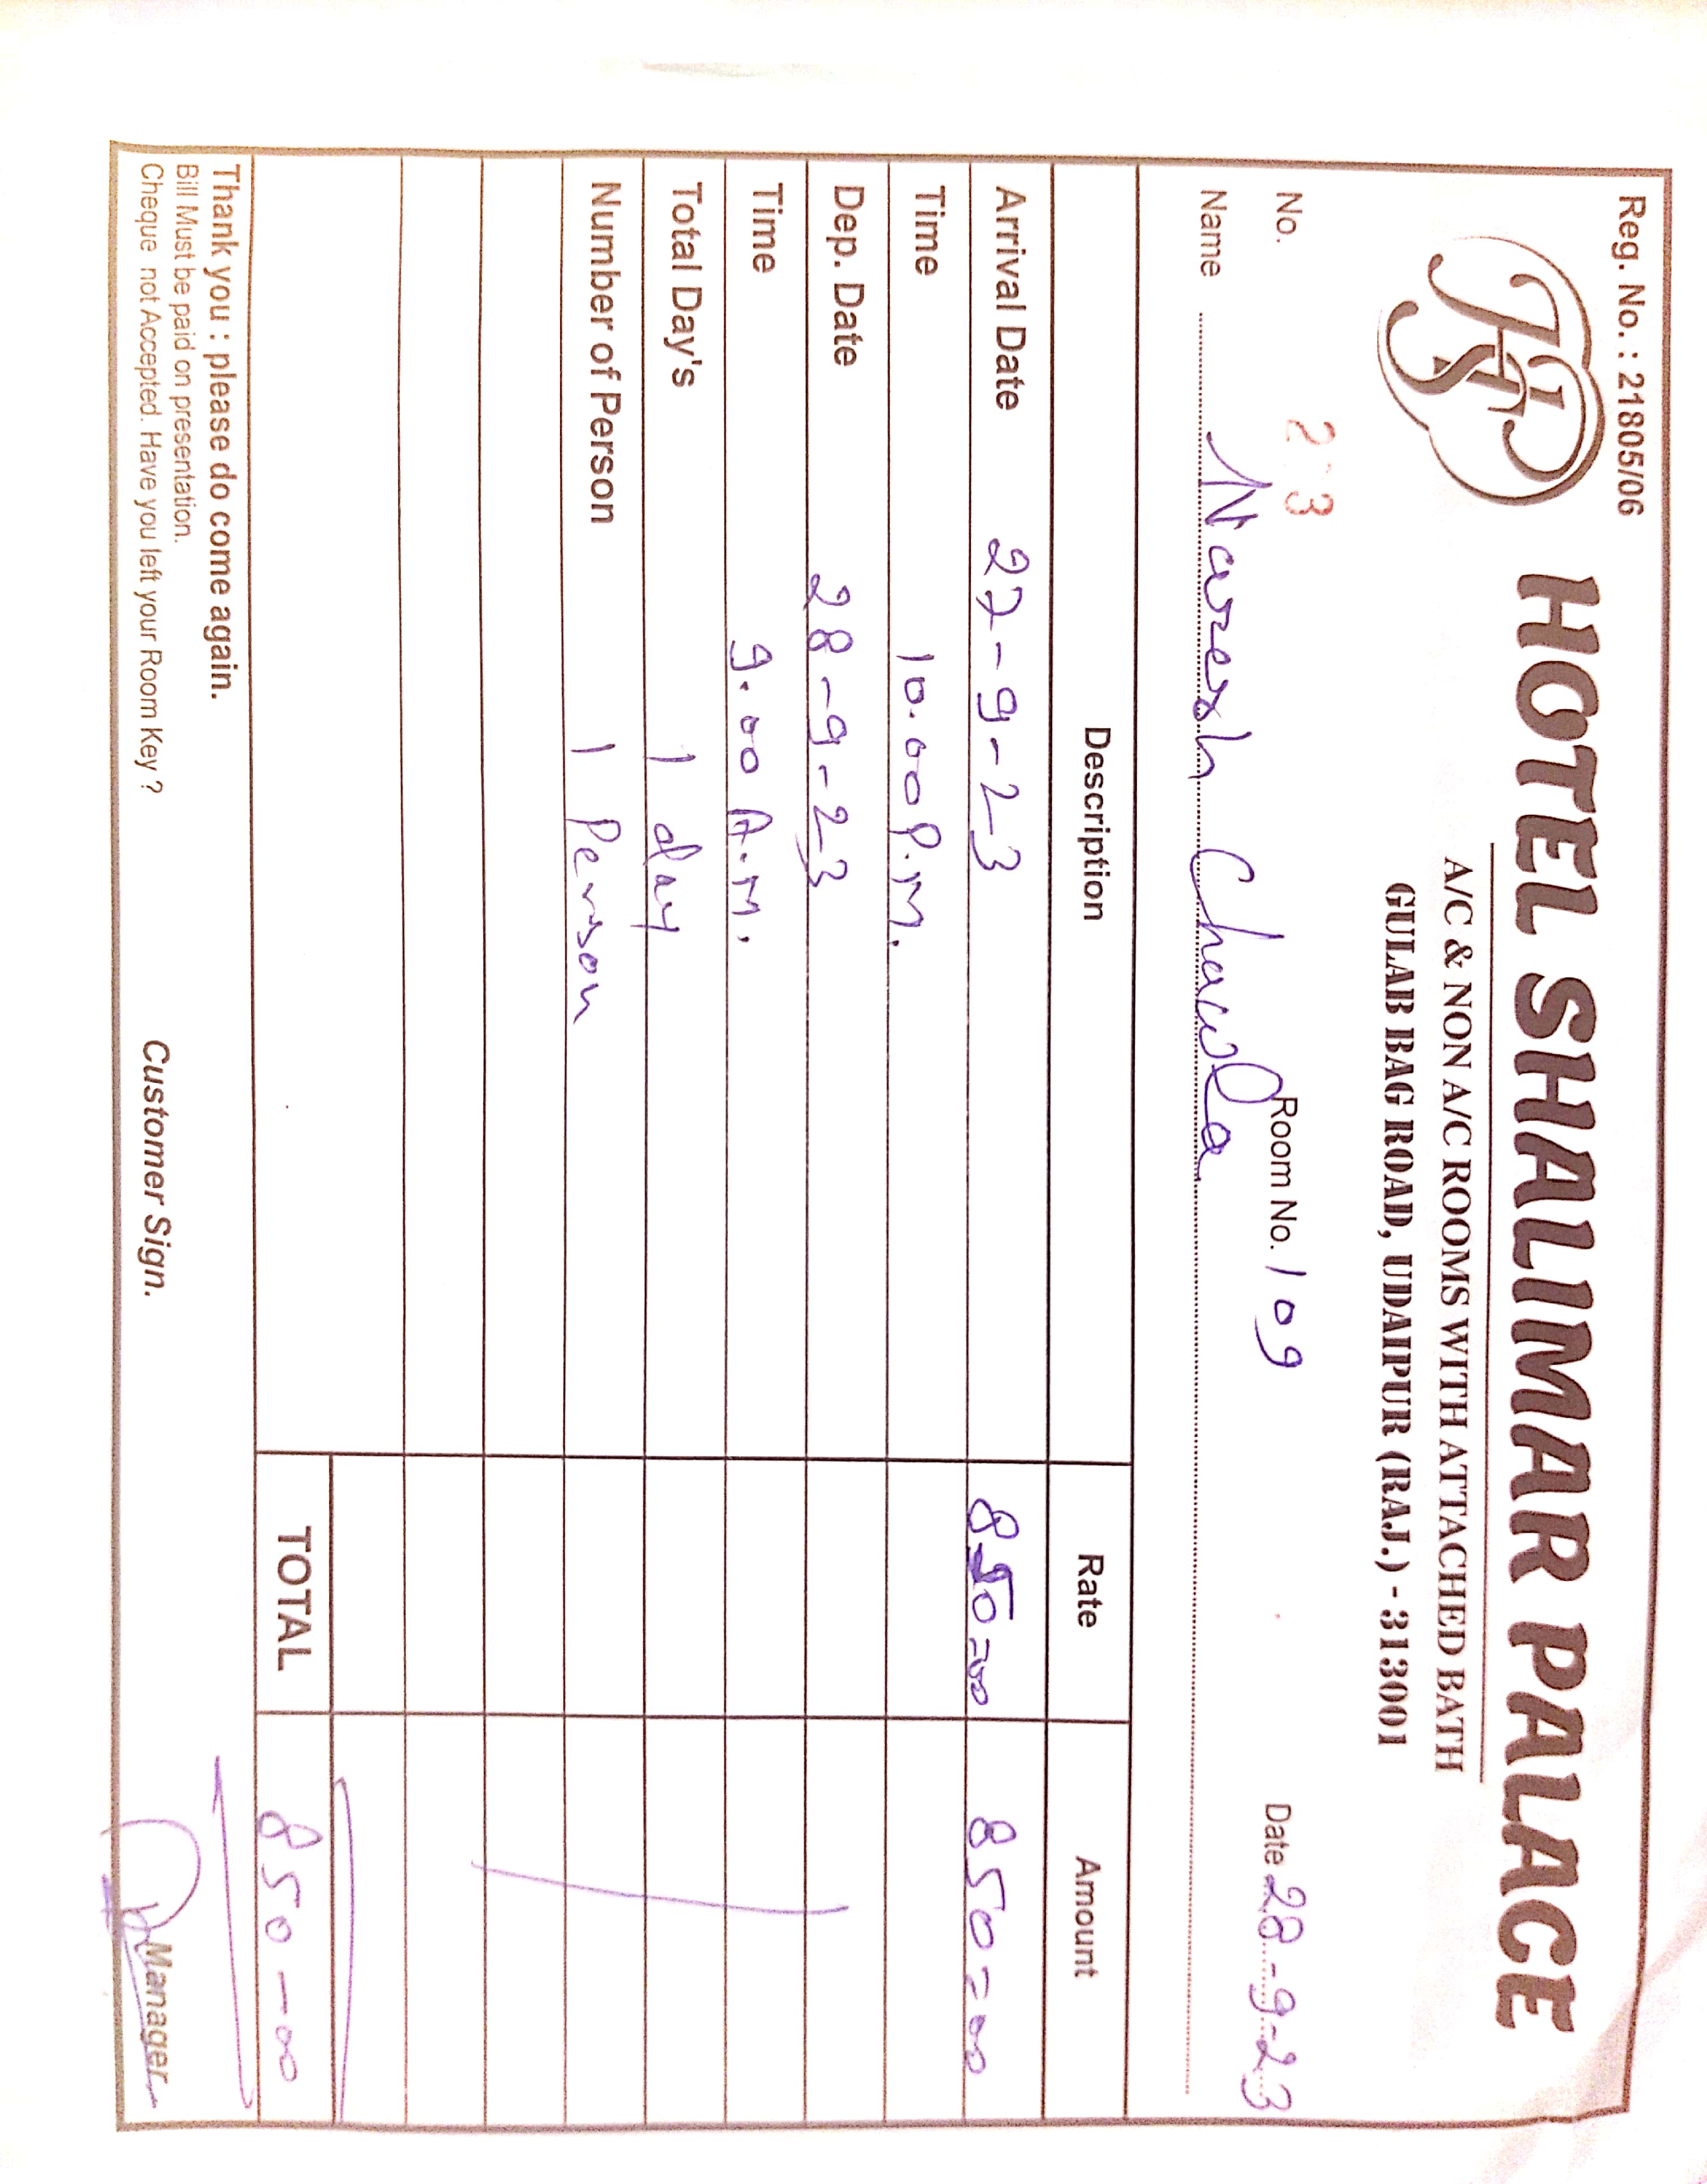 Reg. No. : 21805/06
HSP
HOTEL SHALIMAR PALACE
A/C & NON A/C ROOMS WITH ATTACHED BATH
GULAB BAG ROAD, UDAIPUR (RAJ.) - 313001
No. Room No. 109 Date 28-9-23
Name Naresh Chawla
Description Rate Amount
Arrival Date 27-9-23 850=00 850=00
Time 10.00 P.M.
Dep. Date 28-9-23
Time 9.00 A.M.
Total Day's 1 day
Number of Person 1 Person
TOTAL 850-00
Thank you : please do come again.
Bill Must be paid on presentation.
Cheque not Accepted. Have you left your Room Key ?
Customer Sign.
Manager